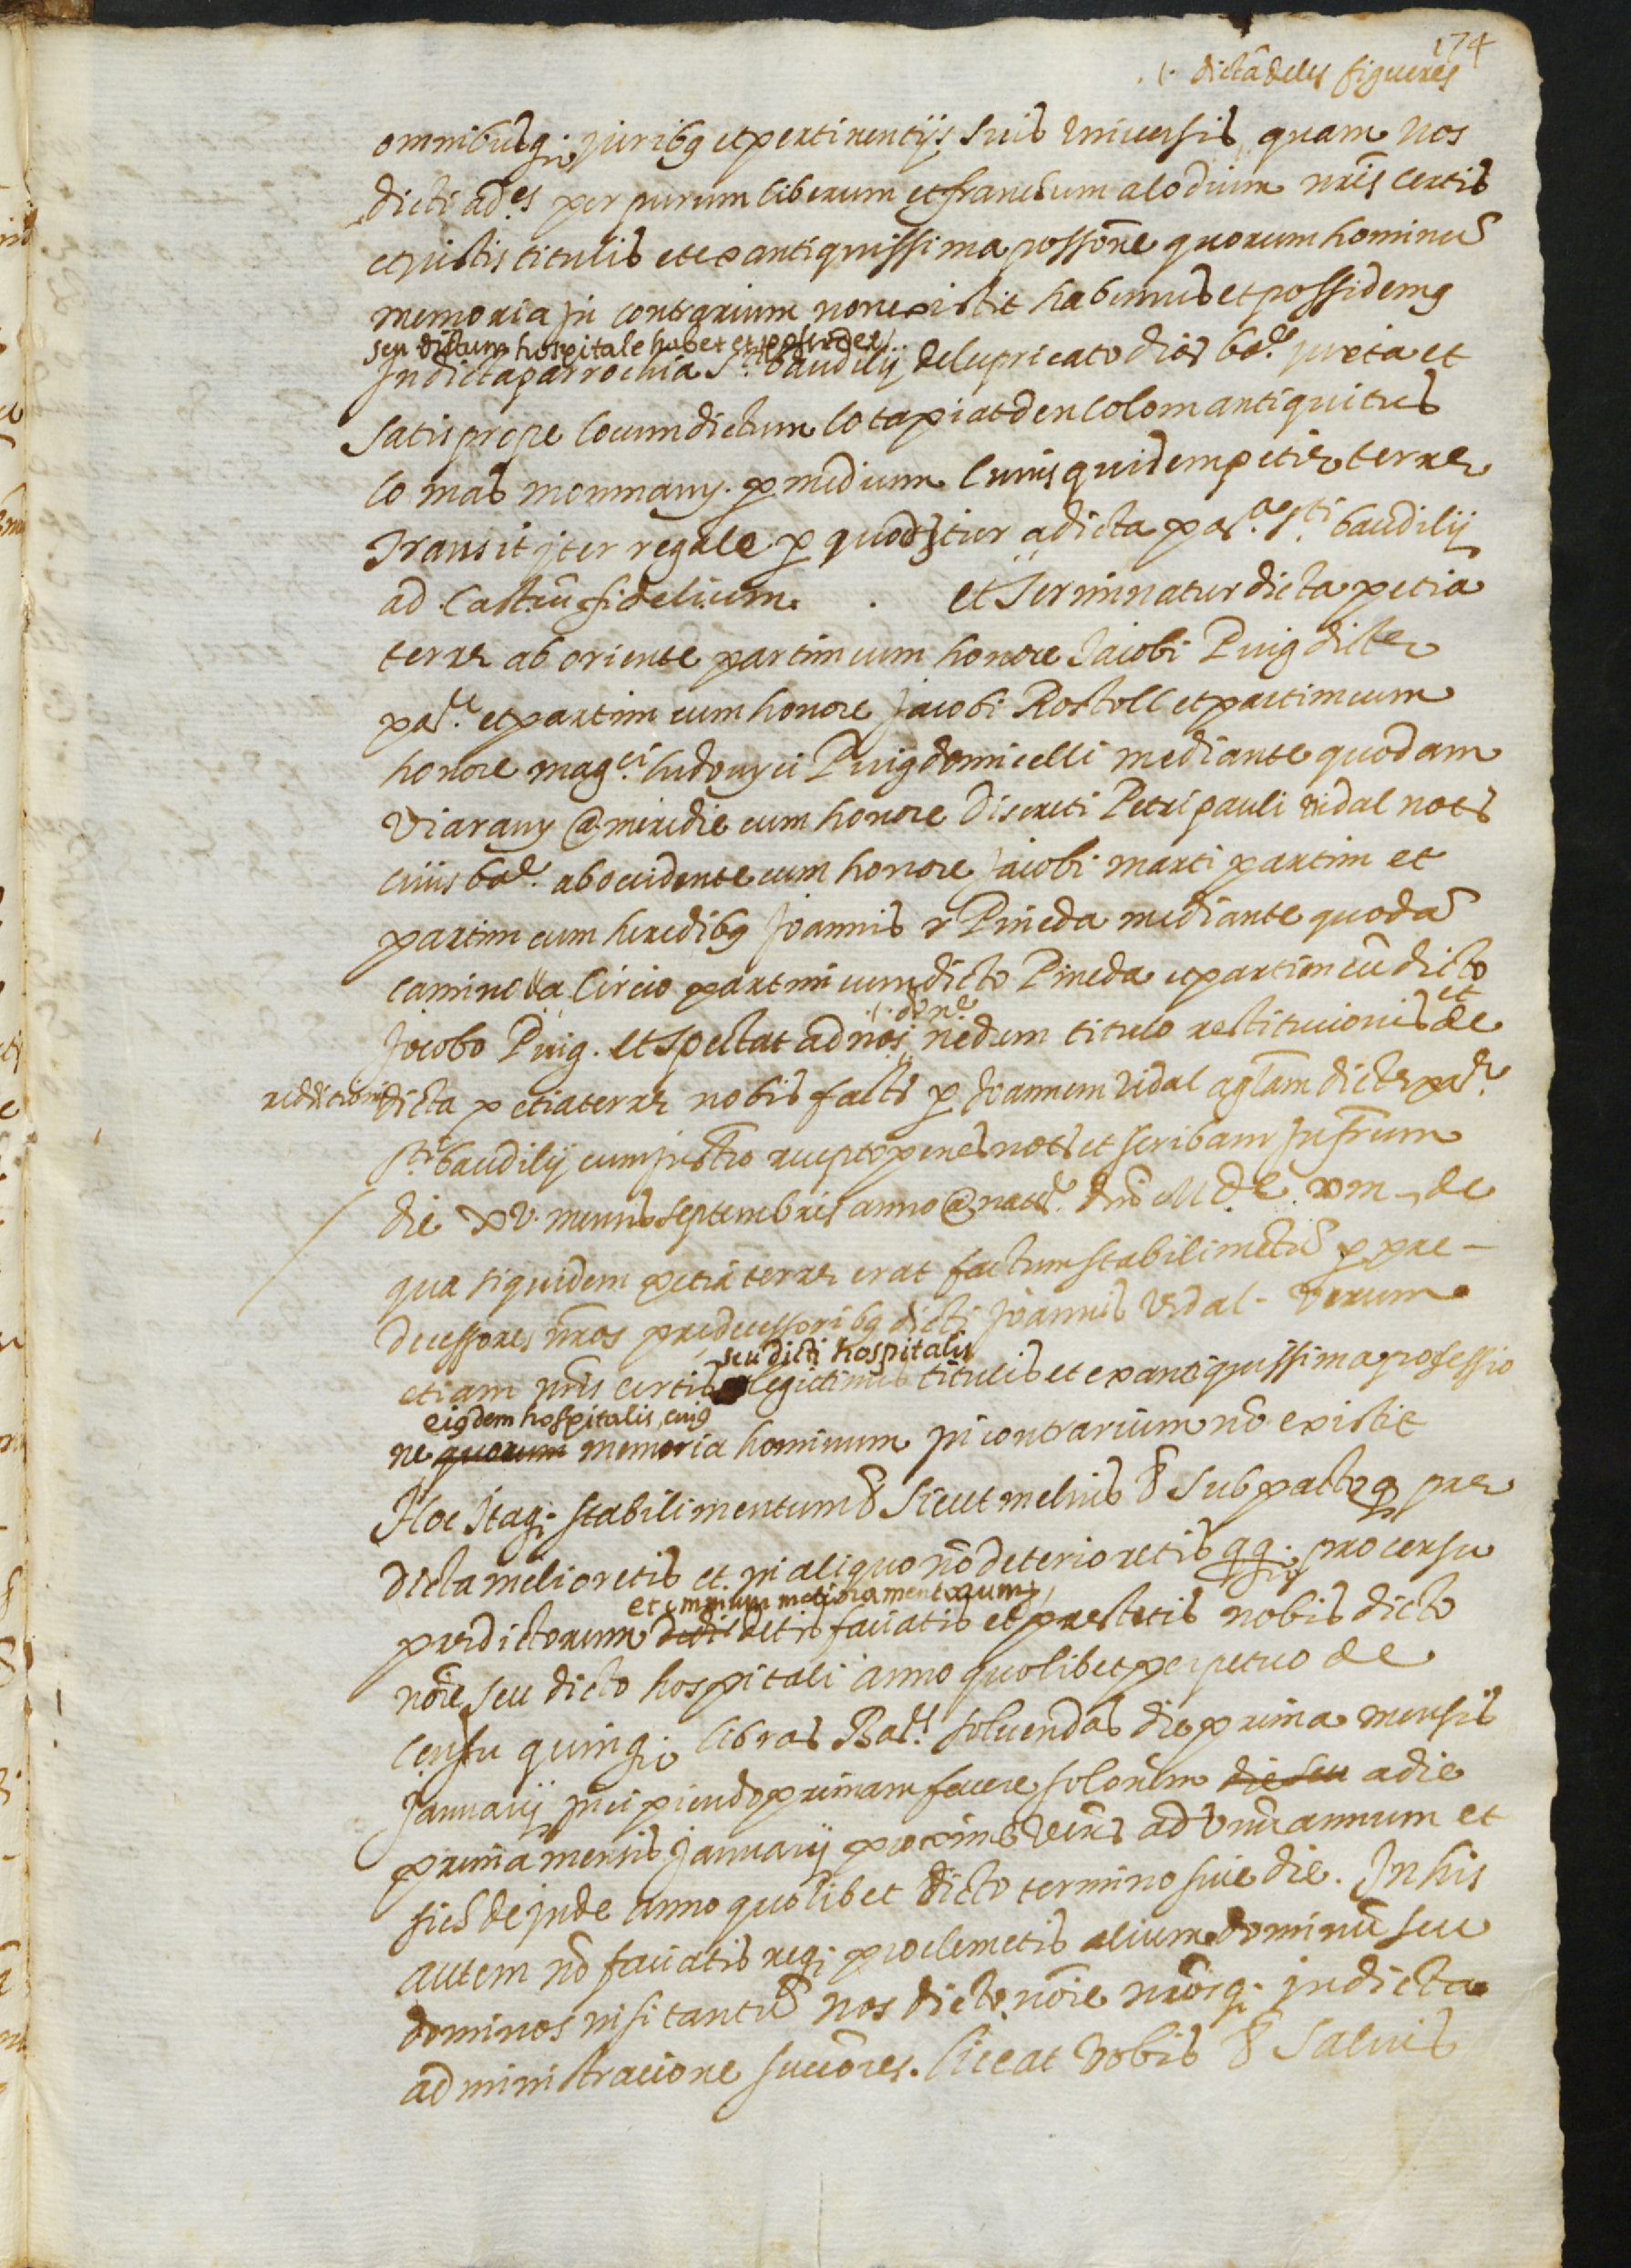 174
.(. dictã deles figueres
omnibusq; juribq et pertinentijs suis vniuersis, quam nos
dicti ad.es per purum liberum et franchum alodium nrĩs certis
et justis titulis et ex antiquissima possõne quorum hominũ
memoria in contrarium non existit habemus et possidemq
seu dictum hospitale habet et possidet
In dicta parrochia S.ti baudilij de lupricato dioš. ba.e juxta et
satis prope locum dictum lo tapiat den colom antiquitus
lo mas mommany. p medium cuius quidem petiæ terræ
Transit jter regale p quod itur a dicta pa.a S.ti baudilij
ad Castrũ fidelium. . et Terminatur dicta petia
terræ ab oriente partim cum honore Jacobi Puig dictæ
pa.e et partim cum honore Jacobi Rostoll et partim cum
honore mag.ci ludouici Puig domicelli mediante quodam
viarany @ meridie cum honore Discreti Petri pauli vidal notš
ciuis ba.e ab occidente cum honore Jacobi marti partim et
partim cum heredibq Joannis r Pineda mediante quodã
camino a Circio partim cum dicto Pineda et partim cũ dicto
.(. dõ nẽ
et
Jacobo Puig. et spectat ad nos nedum titulo restitucionis de
redditionis
dicta petia terræ nobis factæ p Joannem Vidal agłam dictæ pa.æ
S.ti baudilij cum jnstrõ recepto penes notš et scribam jnfrũm
die xv. mensis septembris anno @ nat.e dnĩ M.D.L. xviii, de
qua siquidem petia terræ erat factum stabilimentũ p præ-
decessores nrõs predecessoribq dicti Joannis Vidal. Verum
seu dicti hospitalis
etiam nrĩs certis legittimis titulis et ex antiquissima possessio
eiqdem hospitalis, cuiq
ne quorum memoria hominum in contrarium nõ existit
Hoc Itaq; stabilimentum & sicut melius & Sub pacto q præ
dicta melioretis et in aliquo nõ deterioretis qq; pro censu
et omnium melioramentorum
predictorum detis faciatis et prestetis nobis dicto
nõie seu dicto hospitali anno quolibet perpetuo de
censu quinq; libras Ba.es soluendas die prima mensis
Januarij incipiendo primam facere solonẽm die seu a die
prima mensis Januarij proxime venš ad vnũ annum et
sic de jnde anno quolibet dicto termino siue die. In his
autem nõ faciatis neq; proclemetis alium dominũ seu
dominos nisi tantũ nos dicto nõie nrõsq; in dicta
administracione succõres. Liceat vobis & Saluis